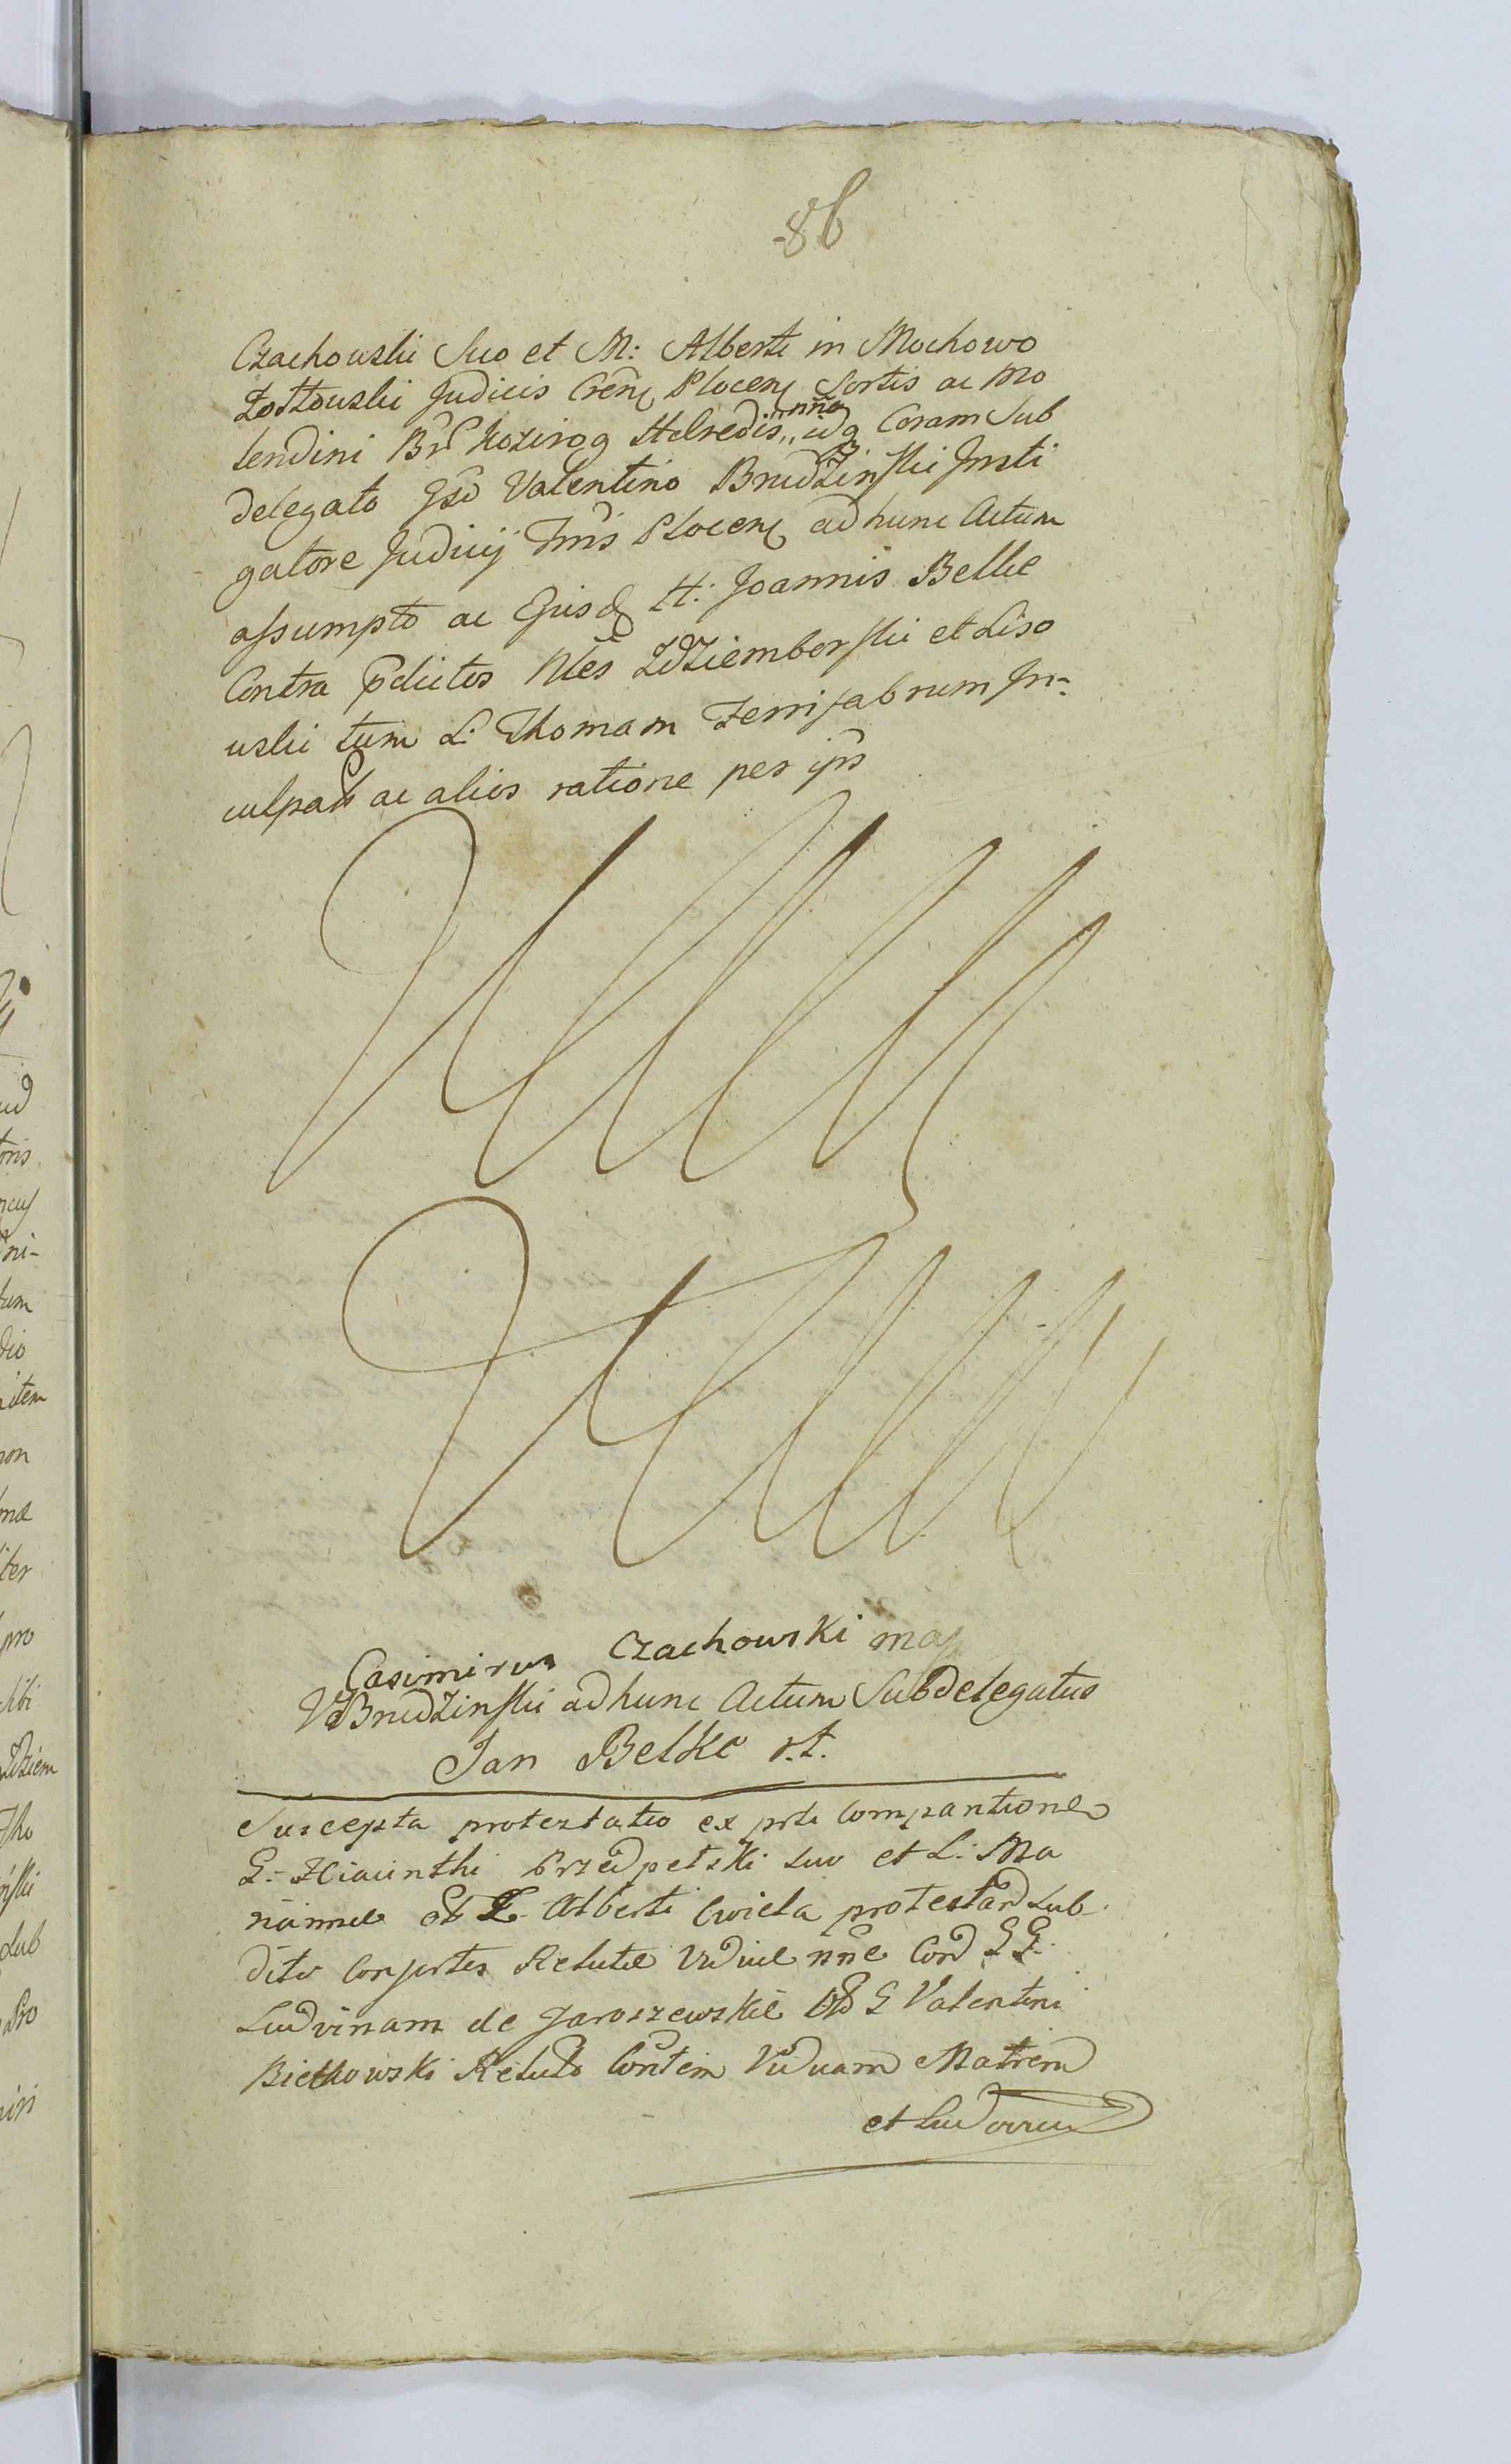 86
Czachowski Suo et M: Alberti in Mochowo
Zołtowski Judicis Cren Plocen Sortis ac Mo
lendini Br Kozirog Hæredis nña idq Coram Sub
delegato Gso Valentino Brudzinski Insti
gatore Judicij Tmis Plocen ad hunc Actum
assumpto ac Ejusd H: Joannis Belke
Contra pdictos Nles Zdziemborski et Liso
wski tum L: Thomam Ferrifabrum In-
culpat ac alios ratione per ipos
Casimirus Czachowski mp
VBrudzinski ad hunc Actum Subdelegatus
Jan Belke r.t.
Suscepta protestatio ex prte Comparitione
G: Hiacinthi Przedpełski suo et L: Ma
riannæ Alberti Cwiela protestand Sub
diti Consortes Relictæ Viduæ nñe Cord GG
Ludvinam de Jaroszewskie G Valentini
Bietkowski Relicto Contem Viduam Matrem
et Ludovicum
ud
oris
ni-
tum
dio
item
non
mæ
iter
pro
sibi
Zdziem
Tho
nski
dub
Pro